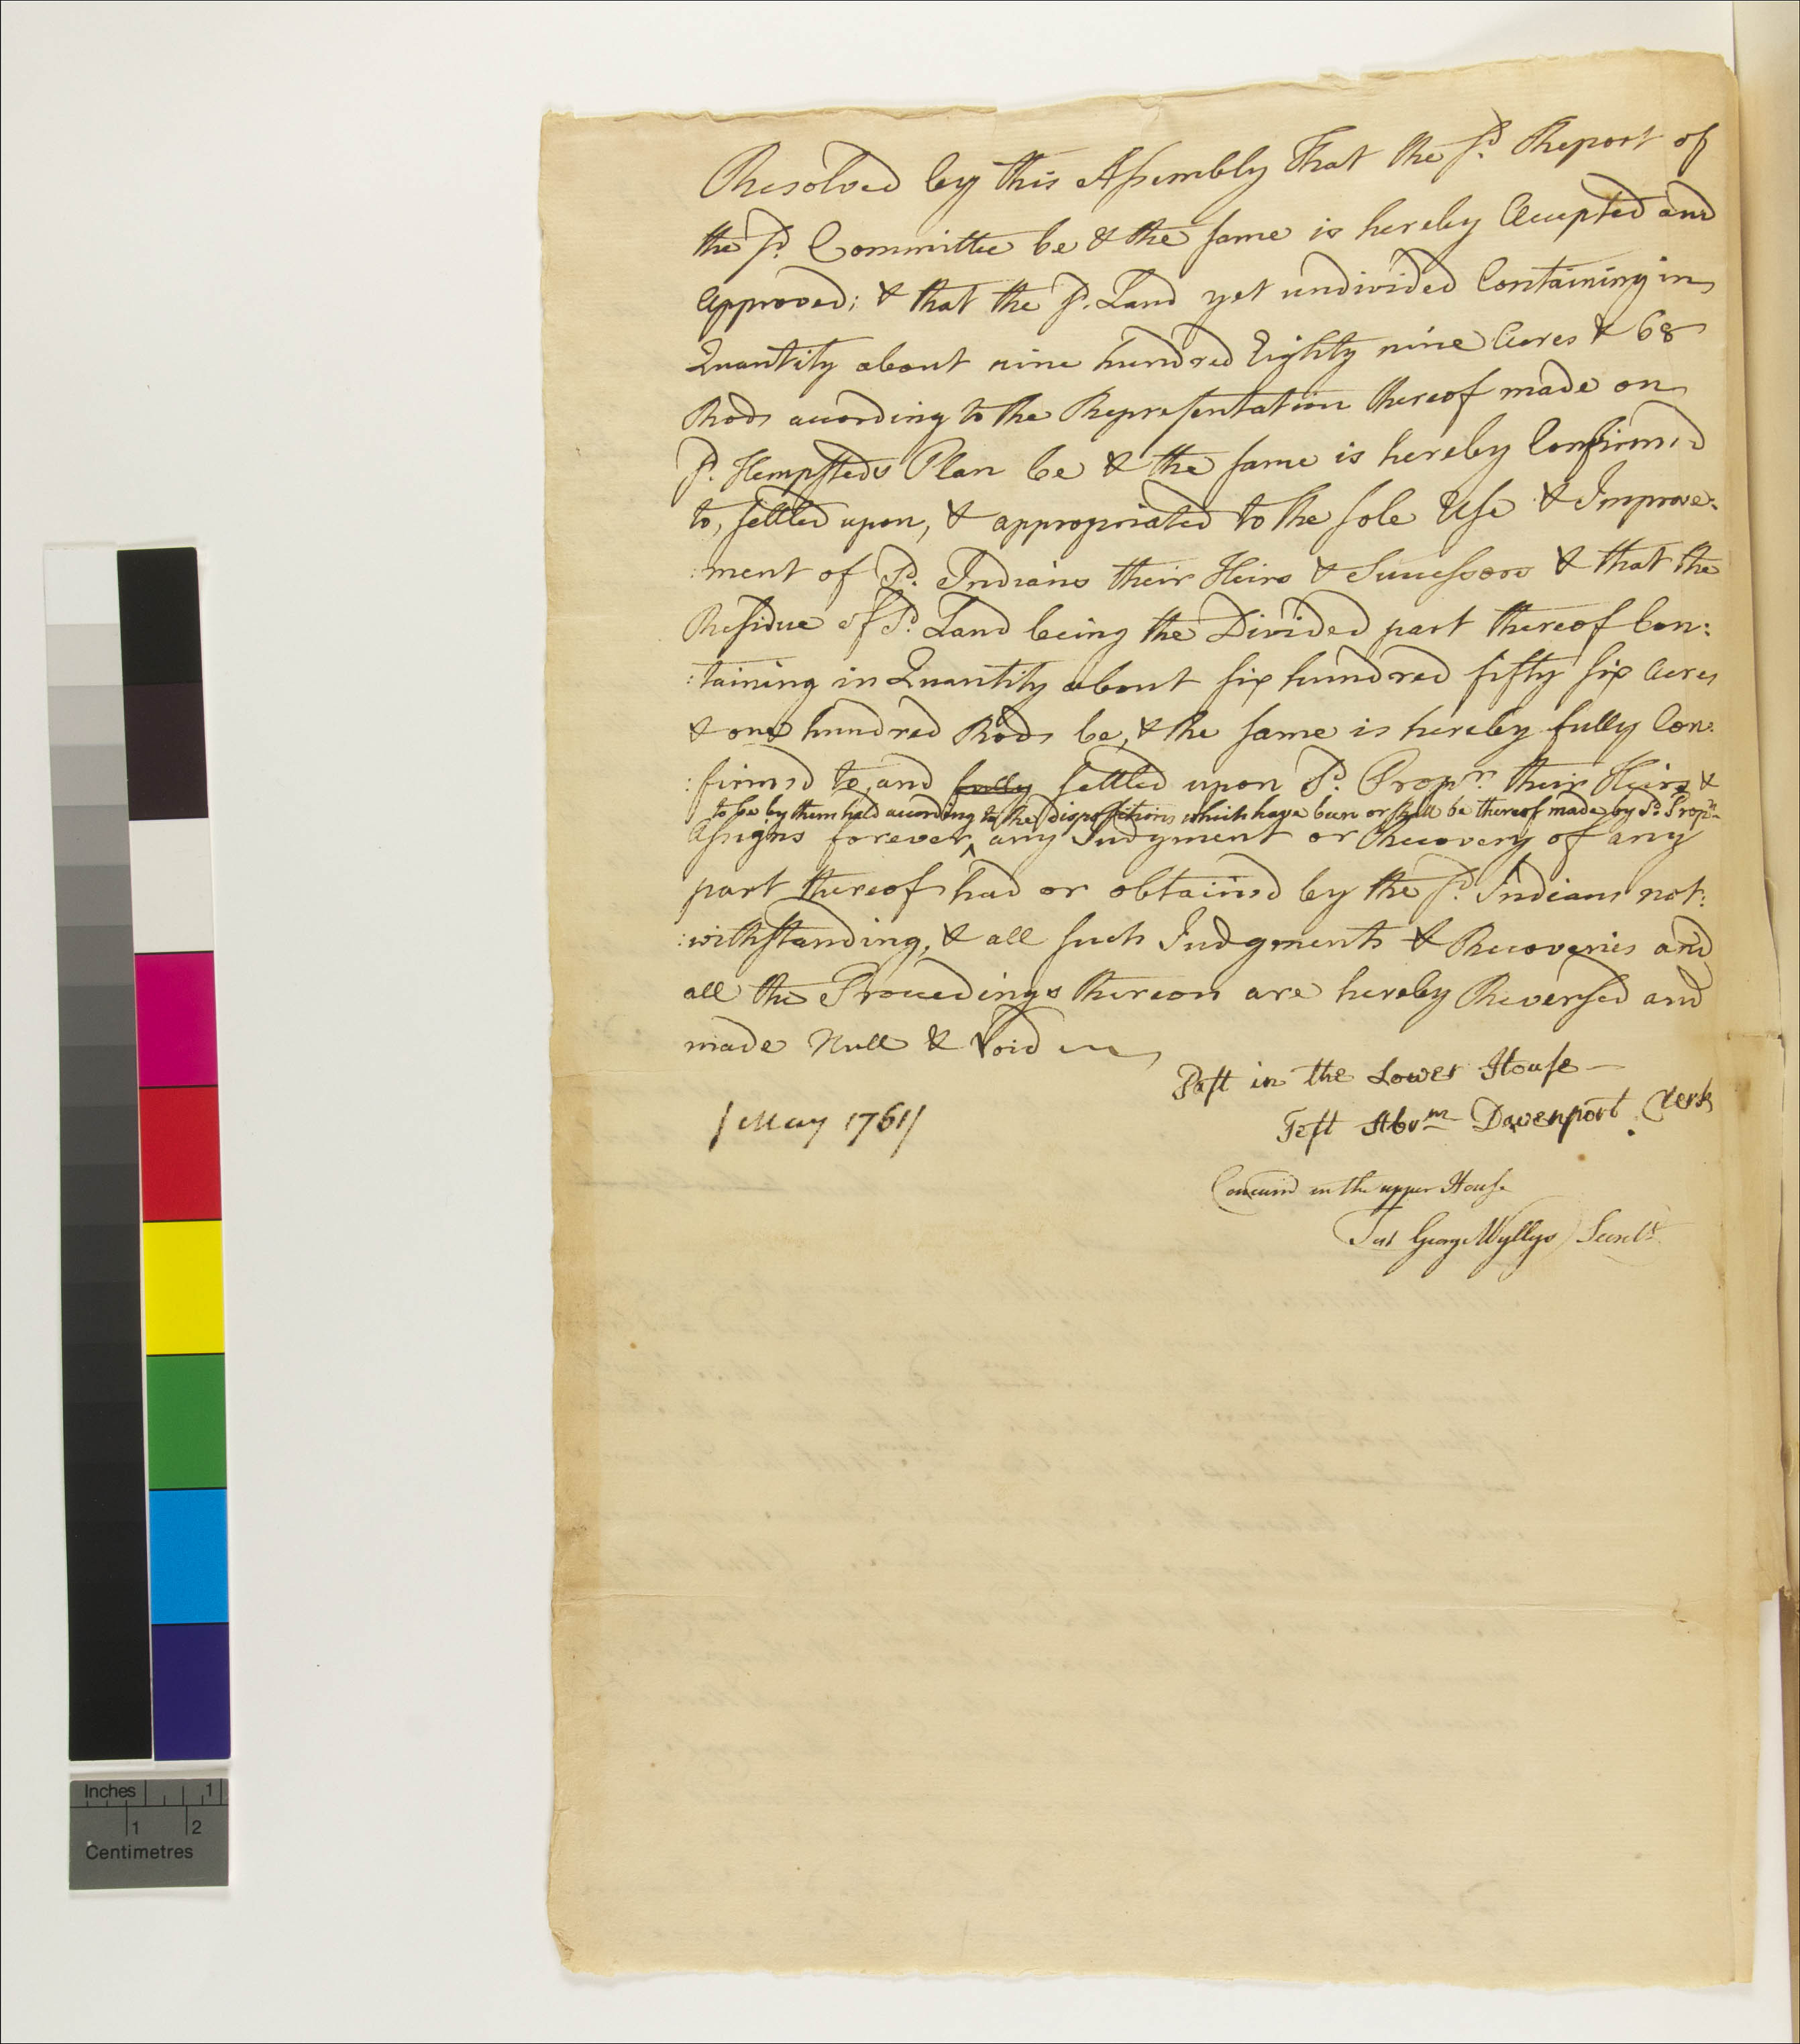 Resolved by this Assembly That the sd. Report of
the sd. Committee be & the same is hereby Accepted and
Approved; & that the sd. Land yet undivided Containing in
Quantity about nine hundred Eighty nine Acres & 68
Rods according to the Representation thereof made on
sd. Hempsteds Plan be & the same is hereby Confirm'd
to, settled upon, & appropriated to the sole Use & Improve:
:ment of sd. Indians their Heirs & Successors & that the
Residue of sd. Land being the Divided part thereof Con:
:taining in Quantity about six hundred fifty six Acres
& one hundred Rods be, & the same is hereby fully Con:
:firm'd to, and fully settled upon sd. Proprs. their Heirs &
to be by them held according to the dispositions which have been or shall be thereof made by sd. Proprs.
Assigns forever, ^ any Judgment or Recovery of any
part thereof had or obtain'd by the sd. Indians not:
:withstanding, & all such Judgments & Recoveries and
all the Proceedings thereon are hereby Reversed and
made Null & Void
Past in the Lower House
Test Abrm Davenport. Clerk
[May 1761]
Concurr'd in the upper House
Test George Wyllys Secrety.
Inches 1
1 2
Centimetres